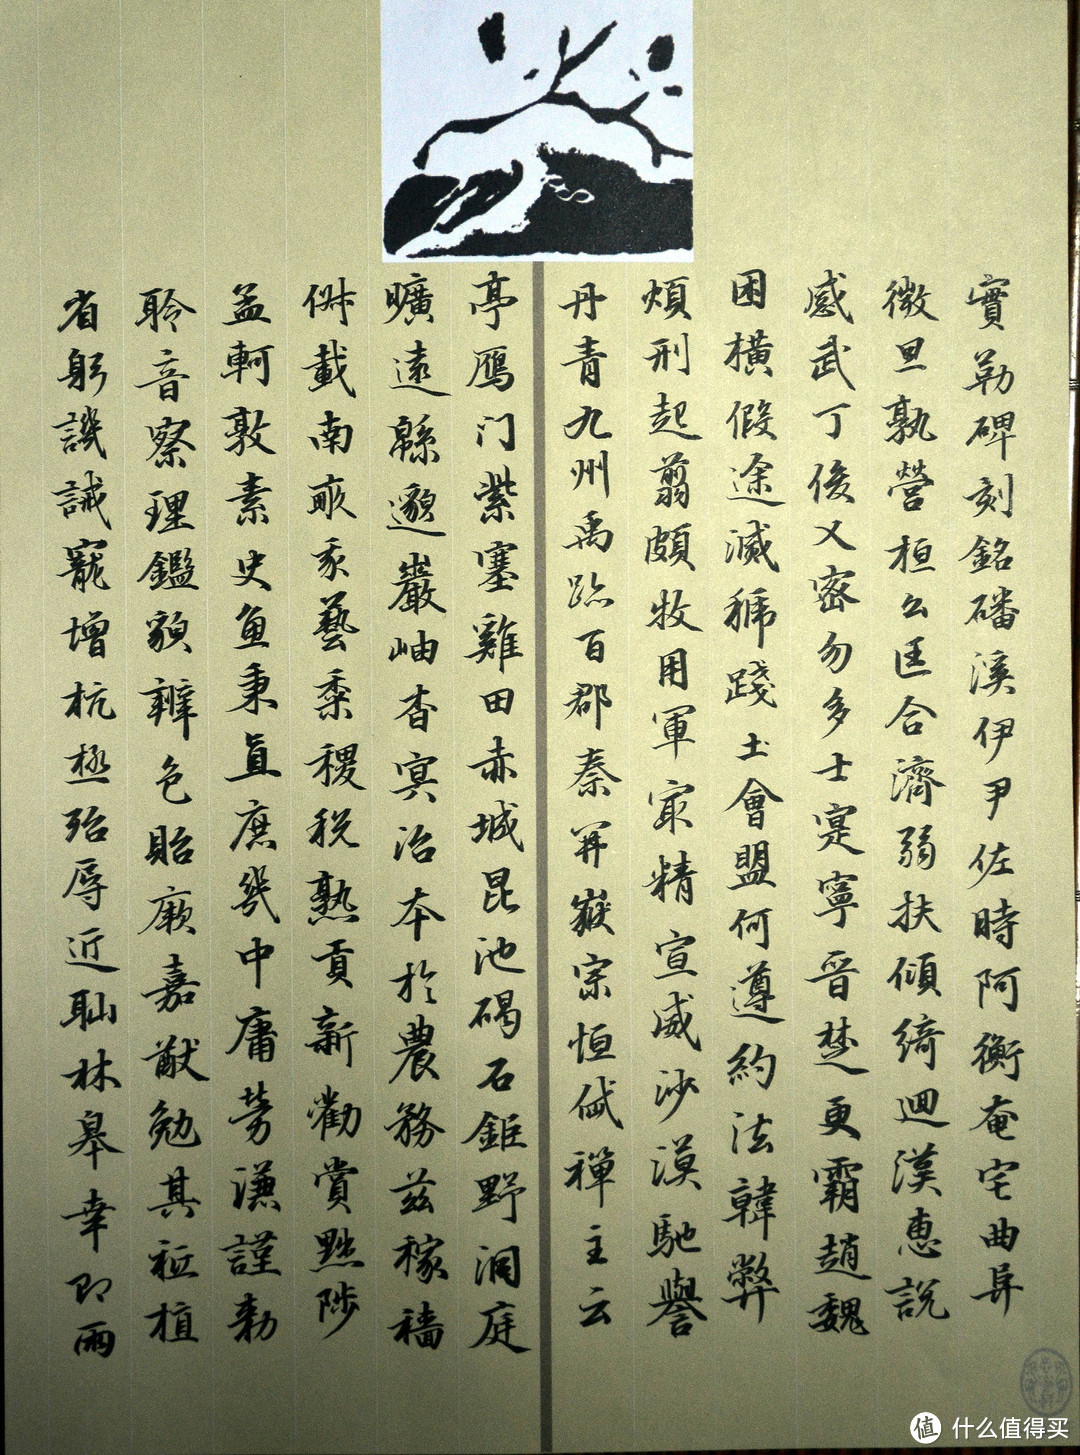 實勒碑刻銘磻溪伊尹佐時阿衡奄宅曲阜
微旦孰營桓公匡合濟弱扶傾綺迴漢惠說
感武丁俊乂密勿多士寔寧晉楚更霸趙魏
困橫假途滅虢踐土會盟何遵約法韓弊
煩刑起翦頗牧用軍冣精宣威沙漠馳譽
丹青九州禹跡百郡秦并嶽宗恒岱禪主云
亭鴈门紫塞雞田赤城昆池碣石鉅野洞庭
曠遠緜邈巖岫杳冥治本於農務茲稼穡
俶載南畝我藝黍稷稅熟貢新勸賞黜陟
孟軻敦素史魚秉直庶幾中庸勞謙謹勅
聆音察理鑑貌辨色貽厥嘉猷勉其祗植
省躬譏誡寵增抗極殆辱近恥林皋幸即兩
值 什么值得买